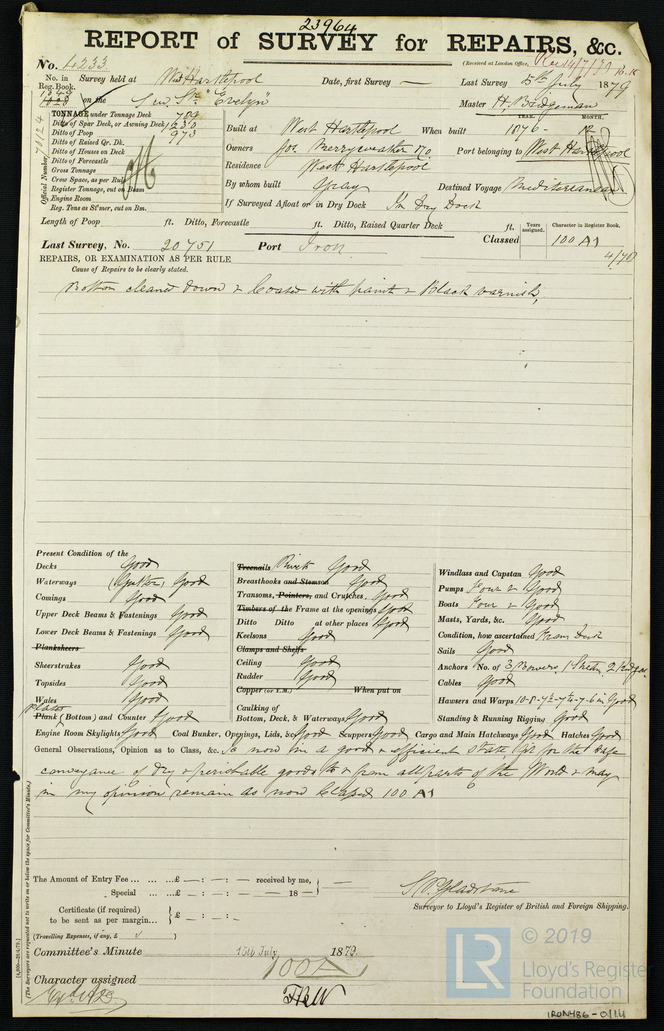 23964
REPORT of SURVEY for REPAIRS, &c.
No. 4233
(Received at London Office,
No. in Reg. Book. Survey held at West Hartlepool Date, first Survey — Last Survey 5th July 1879
on the Screw Str "Evelyn" Master H. Bridgeman
TONNAGE under Tonnage Deck 709
Ditto of Spar Deck, or Awning Deck
Ditto of Poop 973
Ditto of Raised Qr. Dk.
Ditto of Houses on Deck
Ditto of Forecastle
Gross Tonnage
Crew Space, as per Rule
Register Tonnage, cut on Beam
Engine Room
Reg. Tons as St'mer, cut on Bm.
Official Number,
Built at West Hartlepool When built YEAR. 1876 - MONTH. 12
Owners Jos. Merryweather & Co. Port belonging to West Hartlepool
Residence West Hartlepool
By whom built Gray Destined Voyage Mediterranean
If Surveyed Afloat or in Dry Dock In Dry Dock
Length of Poop ft. Ditto, Forecastle ft. Ditto, Raised Quarter Deck ft.
Last Survey, No. 20751 Port Iron Classed Years assigned. Character in Register Book. 100 A1
4/78
REPAIRS, OR EXAMINATION AS PER RULE
Cause of Repairs to be clearly stated.
Bottom cleaned down & Coated with paint & Black varnish,
Present Condition of the
Decks Good
Waterways (Gutter) Good
Comings Good
Upper Deck Beams & Fastenings Good
Lower Deck Beams & Fastenings Good
Planksheers
Sheerstrakes Good
Topsides Good
Wales Good
Plates
Plank (Bottom) and Counter Good
Treenails Rivets Good
Breasthooks and Stemson Good
Transoms, Pointers, and Crutches. Good
Timbers of the Frame at the openings Good
Ditto Ditto at other places Good
Keelsons Good
Clamps and Shelfs
Ceiling Good
Rudder Good
Copper (or Y.M.) When put on
Caulking of
Bottom, Deck, & Waterways Good
Windlass and Capstan Good
Pumps Four & Good
Boats Four & Good
Masts, Yards, &c. Good
Condition, how ascertained From Deck
Sails Good
Anchors No. of 3 Bowers. 1 Stream. 2 Kedges.
Cables Good
Hawsers and Warps Good
Standing & Running Rigging Good
Engine Room Skylights Good Coal Bunker, Openings, Lids, &c. Good Scuppers Good Cargo and Main Hatchways Good Hatches Good
General Observations, Opinion as to Class, &c. Is now in a good & efficient state, fit for the safe
conveyance of dry & perishable goods to & from all parts of the World & may
in my opinion remain as now Classed 100 A1
(The Surveyors are requested not to write on or below the space for Committee's Minute.)
The Amount of Entry Fee ... ... ...£ — : — : — received by me,
Special ... ...£ — : — : — 18 —
Certificate (if required) to be sent as per margin... £ — : — : —
(Travelling Expenses, if any, £ )
S. P. Gladstone
Surveyor to Lloyd's Register of British and Foreign Shipping.
Committee's Minute 15th July 1879.
Character assigned 100A1
LR © 2019
Lloyd's Register
Foundation
IRON486-0/14